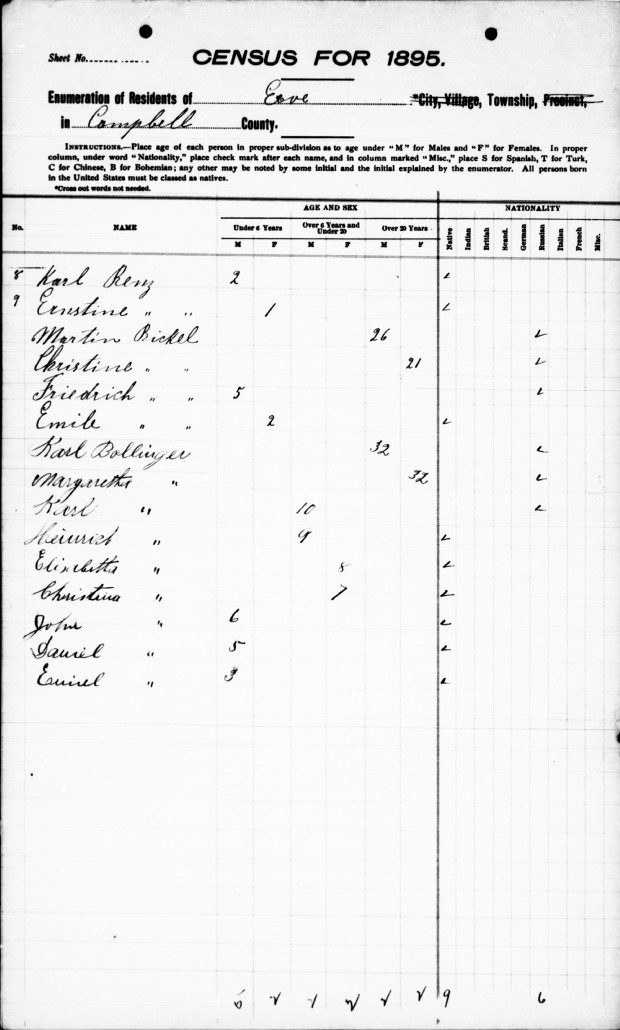 Sheet No.
CENSUS FOR 1895.
Enumeration of Residents of Erve *City, Village, Township, Precinct,
in Campbell County.
INSTRUCTIONS.—Place age of each person in proper sub-division as to age under "M" for Males and "F" for Females. In proper
column, under word "Nationality," place check mark after each name, and in column marked "Misc.," place S for Spanish, T for Turk,
C for Chinese, B for Bohemian; any other may be noted by some initial and the initial explained by the enumerator. All persons born
in the United States must be classed as natives.
*Cross out words not needed.
AGE AND SEX NATIONALITY
No. NAME Under 6 Years Over 6 Years and Under 20 Over 20 Years Native Indian British Scand. German Russian Italian French Misc.
M F M F M F
8 Karl Renz 2 ✓
9 Ernstine " " 1 ✓
Martin Bickel 26 ✓
Christine " " 21 ✓
Friedrich " " 5 ✓
Emilie " " 2 ✓
Karl Bollinger 32 ✓
Margaretha " 32 ✓
Karl " 10 ✓
Heinrich " 9 ✓
Elisabetha " 8 ✓
Christina " 7 ✓
John " 6 ✓
Daniel " 5 ✓
" 3 ✓
5 2 2 2 2 2 9 6